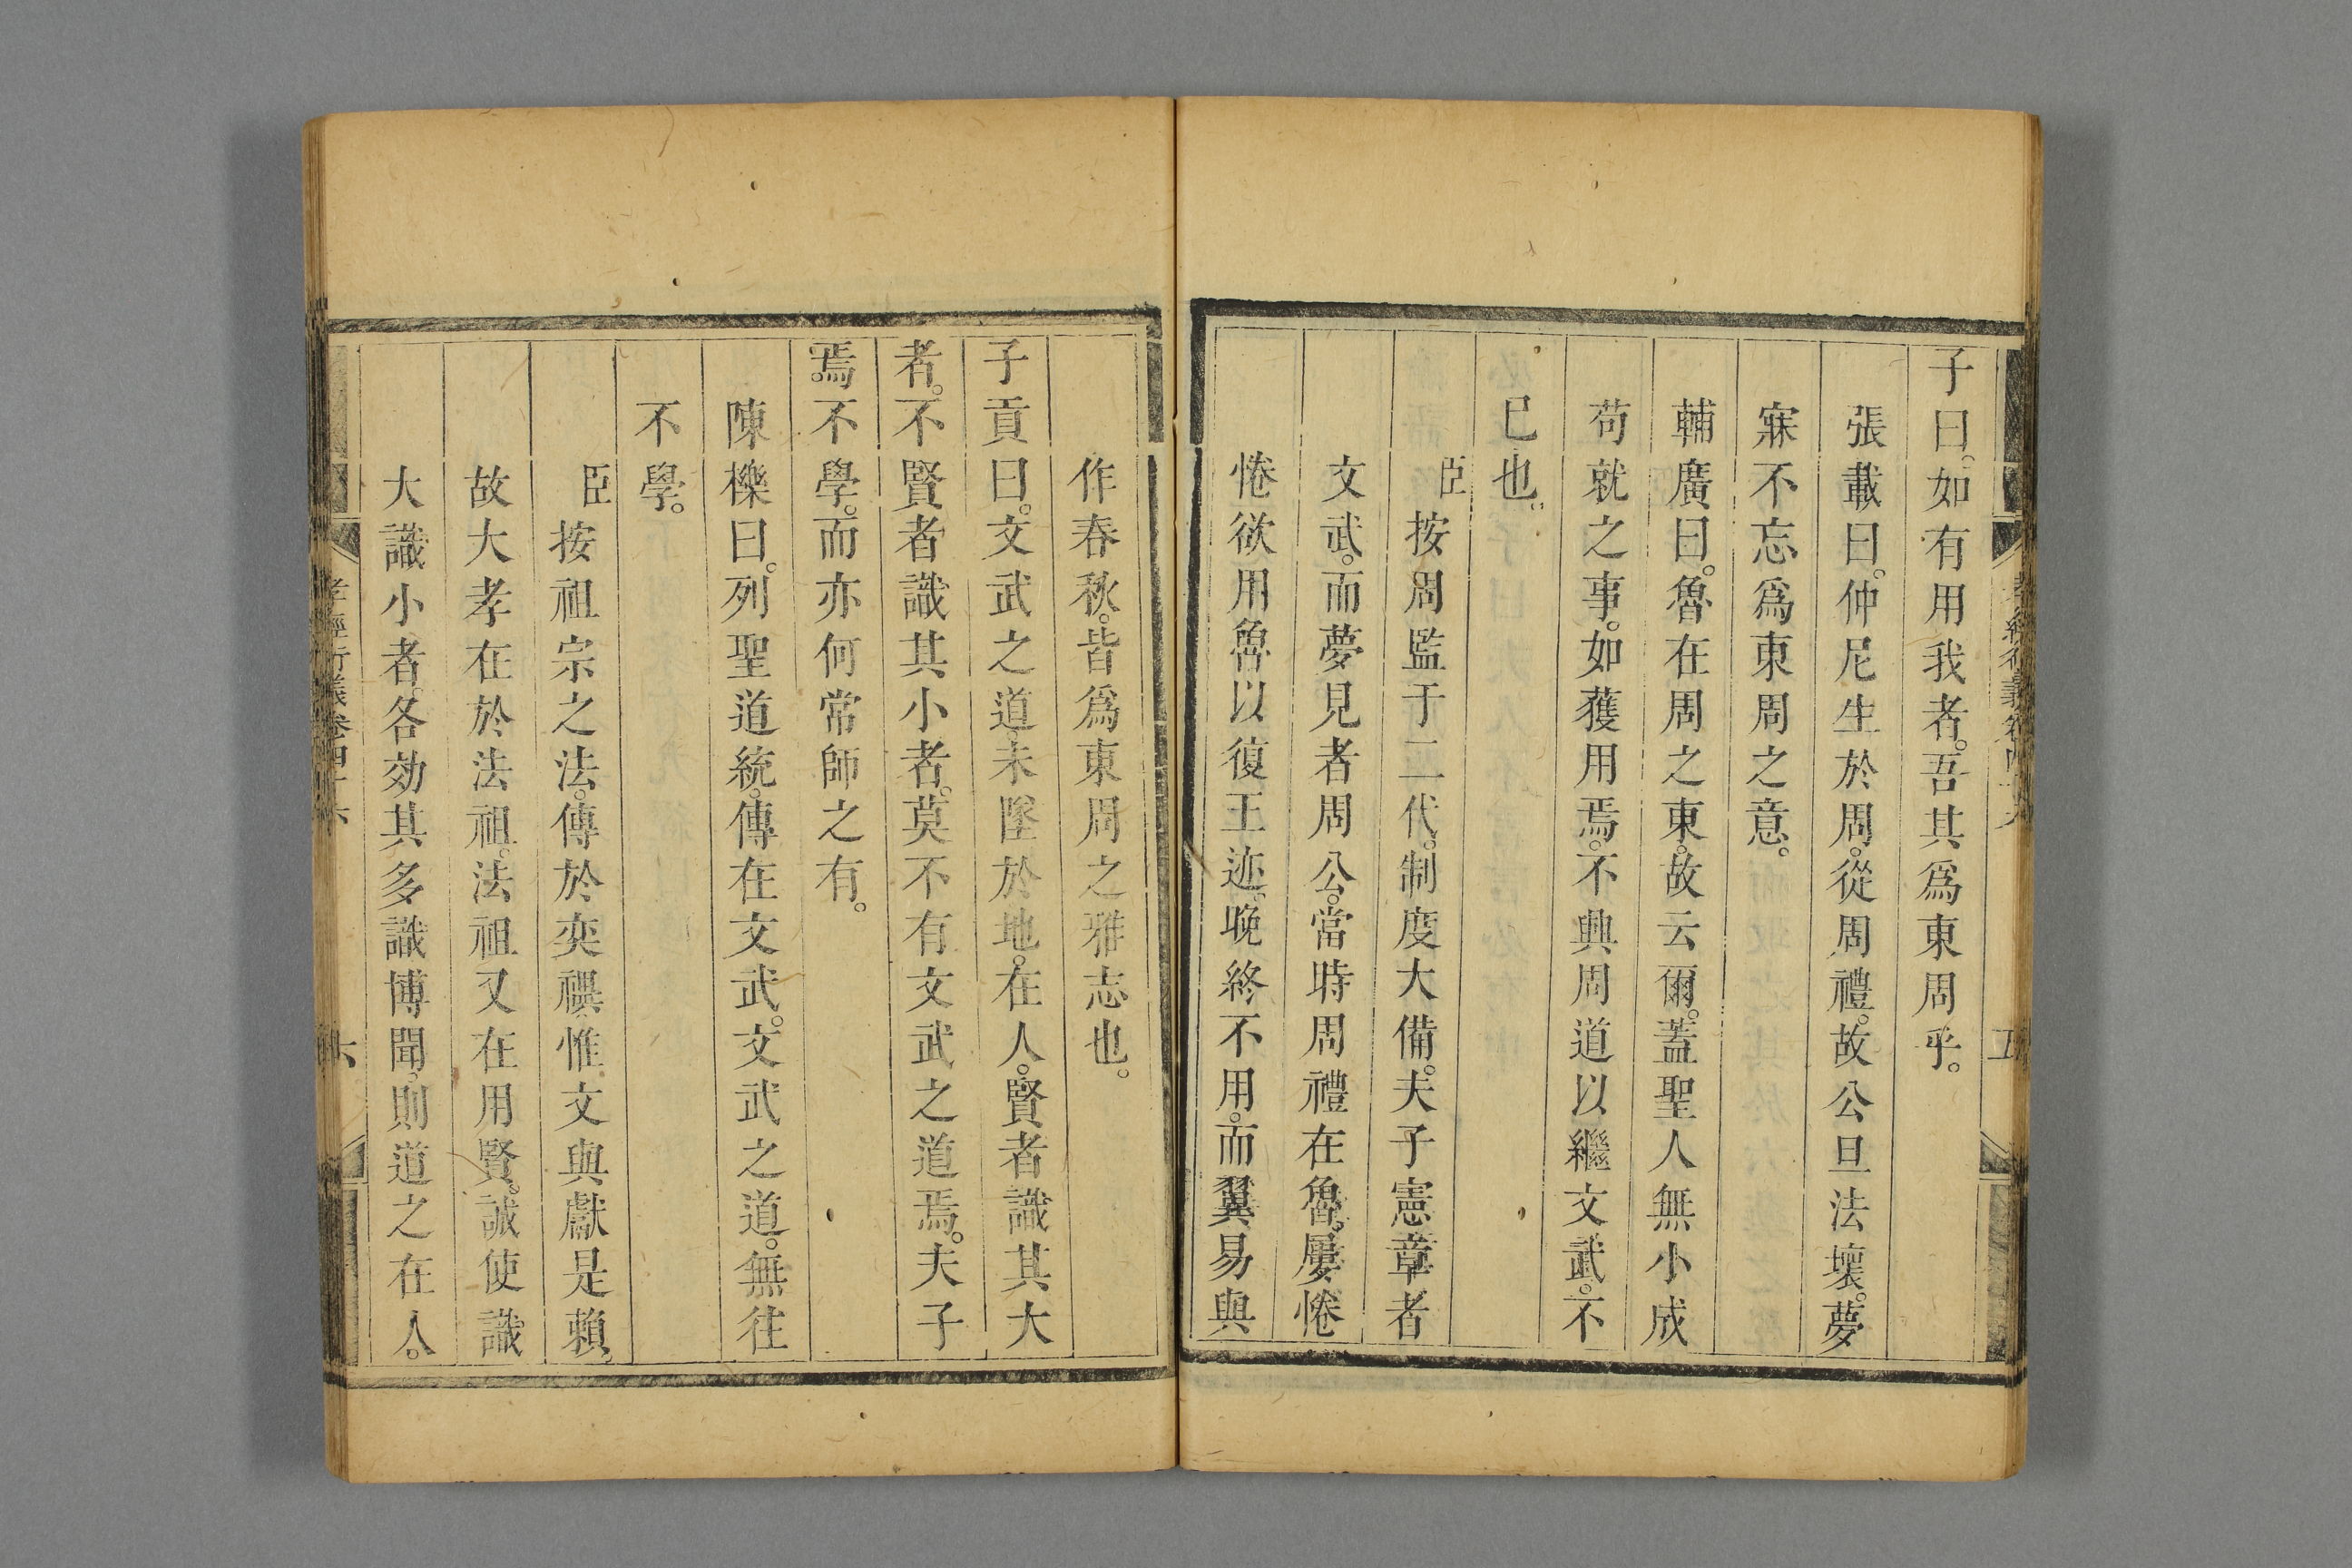 子曰。如有用我者。吾其爲東周乎。
張載曰。仲尼生於周。從周禮。故公旦法壞。夢
寐不忘爲東周之意。
輔廣曰。魯在周之東。故云爾。蓋聖人無小成
苟就之事。如獲用焉。不興周道以繼文武。不
已也。
臣按周監于二代。制度大備。夫子憲章者
文武。而夢見者周公。當時周禮在魯。屢惓
惓欲用魯以復王迹。晚終不用。而翼易與
作春秋。皆爲東周之雅志也。
子貢曰。文武之道。未墜於地。在人。賢者識其大
者。不賢者識其小者。莫不有文武之道焉。夫子
焉。不學。而亦何常師之有。
陳櫟曰。列聖道統。傳在文武。文武之道。無往
不學。
臣按祖宗之法。傳於奕禩。惟文與獻是賴。
故大孝在於法祖。法祖又在用賢。誠使識
大識小者。各効其多識博聞。則道之在人。
孝經衍義卷四十六
六